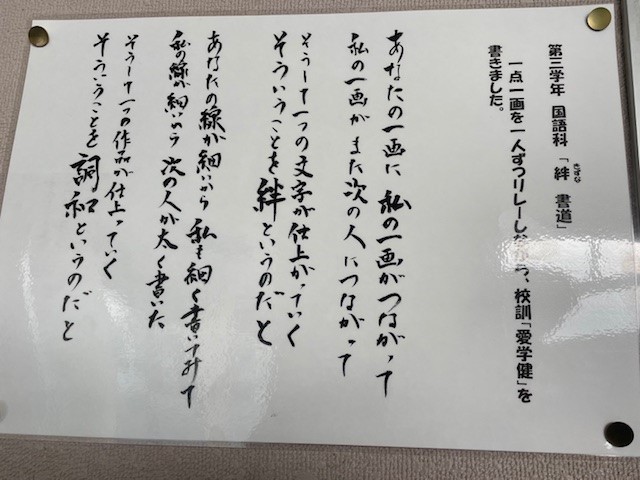 第三学年 国語科 「絆 書道」
きずな
一点一画を一人ずつリレーしながら、校訓「愛学健」を
書きました。
あなたの一画に 私の一画がつながって
私の一画が また次の人につながって
そうして一つの文字が仕上がっていく
そういうことを絆というのだと
あなたの線が細いから 私も細く書いてみて
私の線が細いから 次の人が太く書いた
そうして一つの作品が仕上っていく
そういうことを調和というのだと